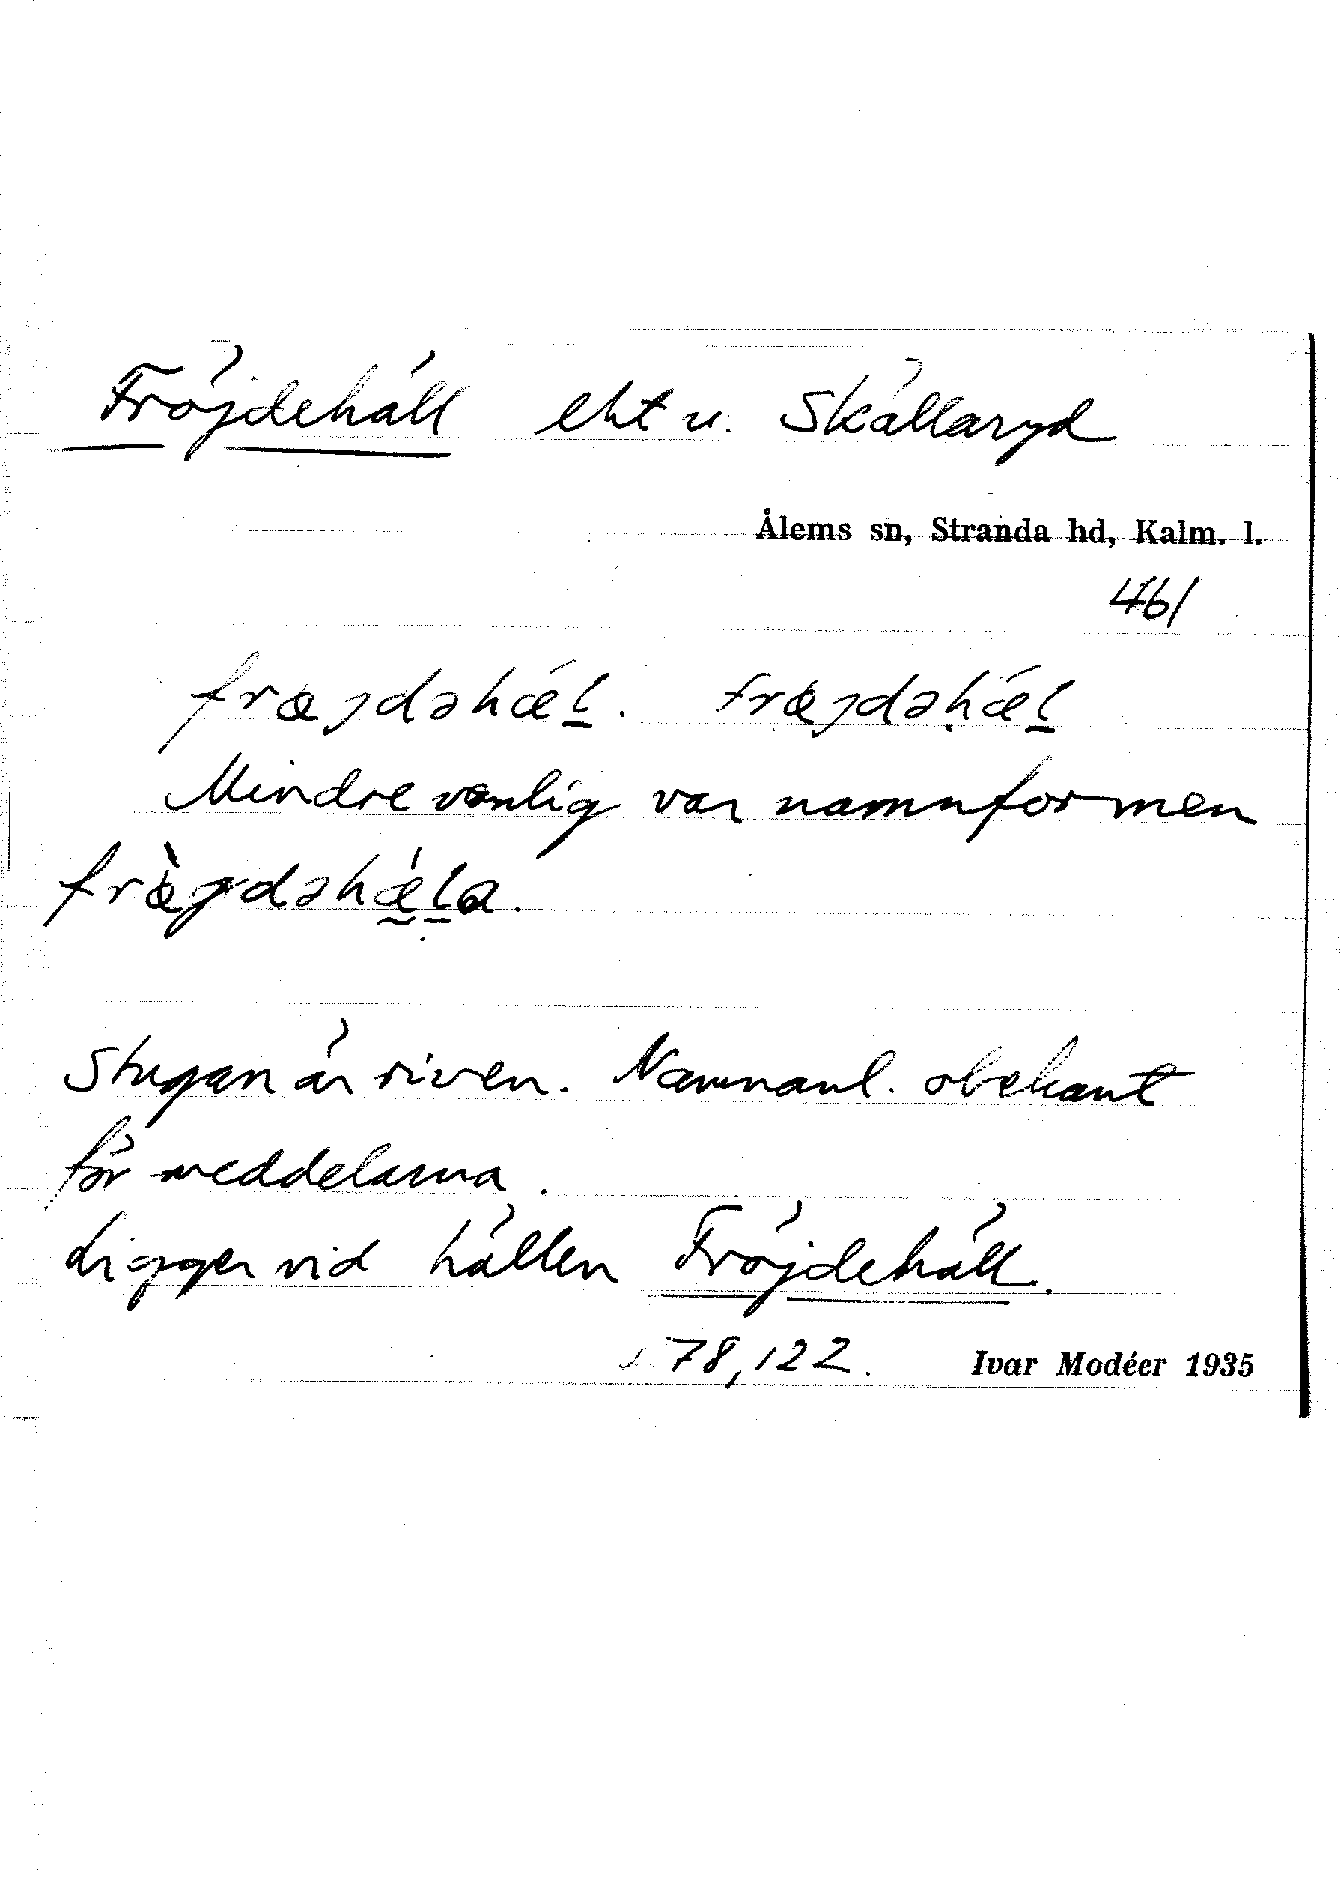 Fröjdehäll lht u. Skällaryd
Ålems sn, Stranda hd, Kalm. l.
461
frœjdəhǽl̲. frœjdəhǽl̲
Mindre vanlig var namnformen
frœ̀jdəhǽl̲a.
Stugan är riven. Namnanl. obekant
för meddelarna.
Ligger vid hällen Fröjdehäll.
78,122. Ivar Modéer 1935